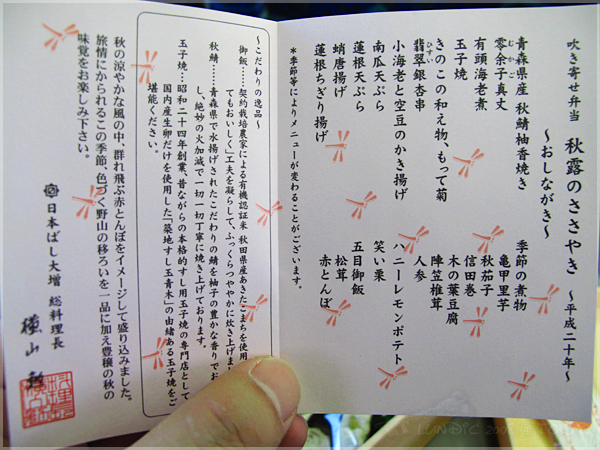 吹き寄せ弁当 秋露のささやき 〜平成二十年〜
〜おしながき〜
青森県産 秋鯖柚香焼き
零余子真丈
むかご
有頭海老煮
玉子焼
きのこの和え物、もって菊
翡翠銀杏串
ひすい
小海老と空豆のかき揚げ
南瓜天ぷら
蓮根天ぷら
蛸唐揚げ
蓮根ちぎり揚げ
季節の煮物
亀甲里芋
秋茄子
信田巻
木の葉豆腐
陣笠椎茸
人参
ハニーレモンポテト
笑い栗
五目御飯
松茸
赤とんぼ
*季節等によりメニューが変わることがございます。
〜こだわりの逸品〜
御飯……契約栽培農家による有機認証米 秋田県産あきたこまちを使用
てもおいしく」工夫を凝らして、ふっくらつややかに炊き上げまし
秋鯖……青森県で水揚げされたこだわりの鯖を柚子の豊かな香りでお
し、絶妙の火加減で一切一切丁寧に焼き上げております。
玉子焼…昭和二十四年創業、昔ながらの本格的すし用玉子焼の専門店として
国内産生卵だけを使用した「築地すし玉青木」の由緒ある玉子焼をご
堪能ください。
秋の涼やかな風の中、群れ飛ぶ赤とんぼをイメージして盛り込みました。
旅情にかられるこの季節、色づく野山の移ろいを一品に加え豊穣の秋の
味覚をお楽しみ下さい。
日本ばし大増 総料理長
横山